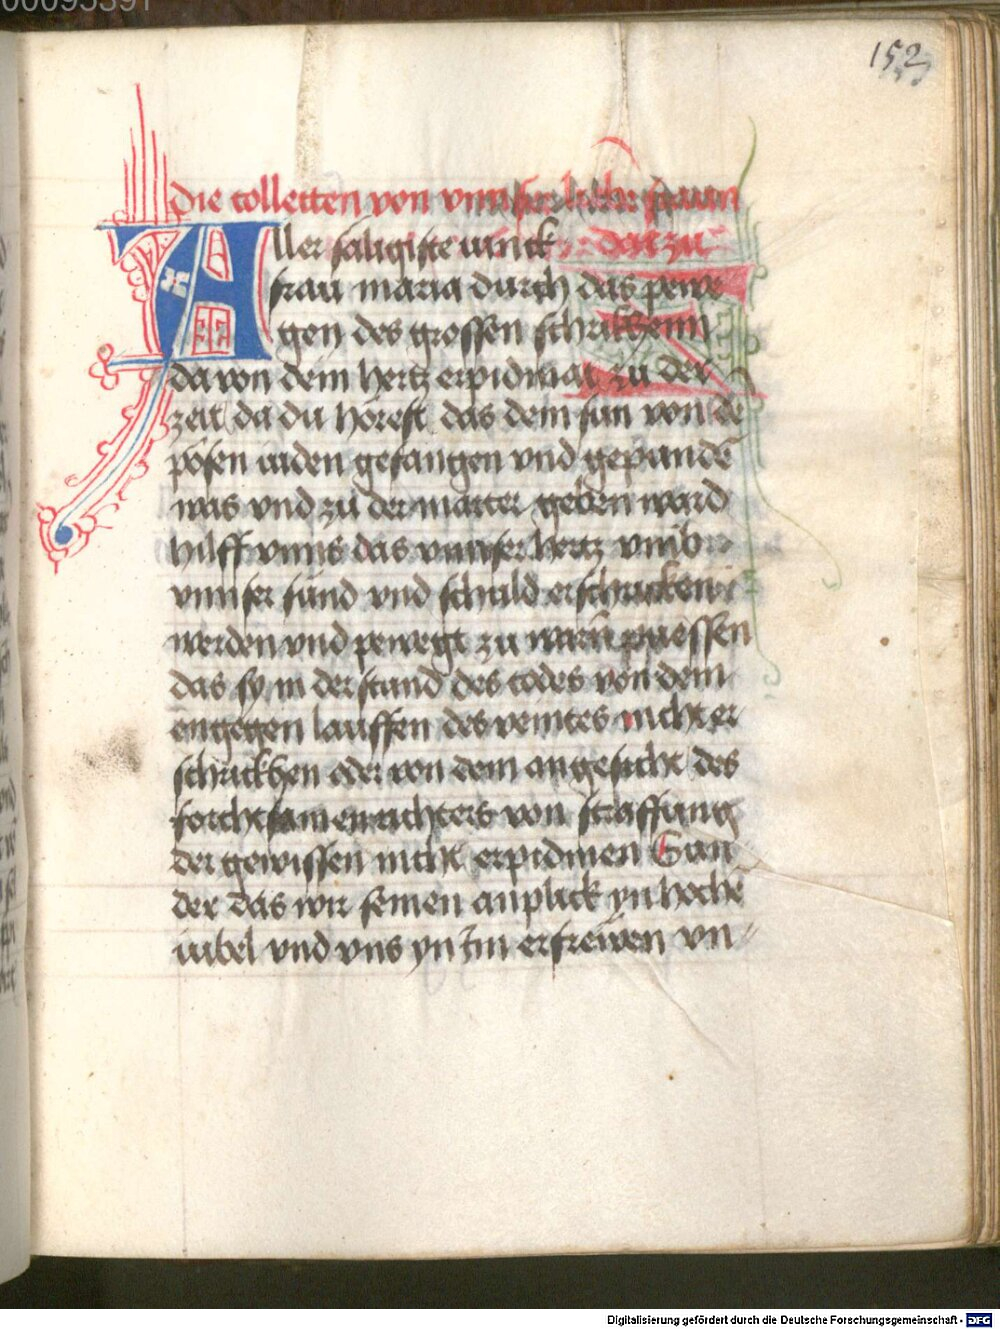 152
Die collecten von vnnser lieben frawn
Aller saligiste iunck
frau maria durch das pewe
gen des grossen schrikhenn
da von dem hertz erpidmat zu der
zeit da du horest das dein sun von de
posen iuden gefangen vnd gepunden
was vnd zu der marter geben ward
hilff vnns das vnnser hertz vmb
vnnser sund vnd schuld erschrocken
werden vnd pewegt zu warn puessen
das sy in der stund des todes von dem
engegen lauffen des veintes nicht er
schrickhen oder von dem angesicht des
forchtsamen richters von straffung
der gewissen nicht erpidmen Sun
der das wir seinen anplick yn hochē
iubel vnd vns yn Im erfrewen vn
Digitalisierung gefördert durch die Deutsche Forschungsgemeinschaft - DFG